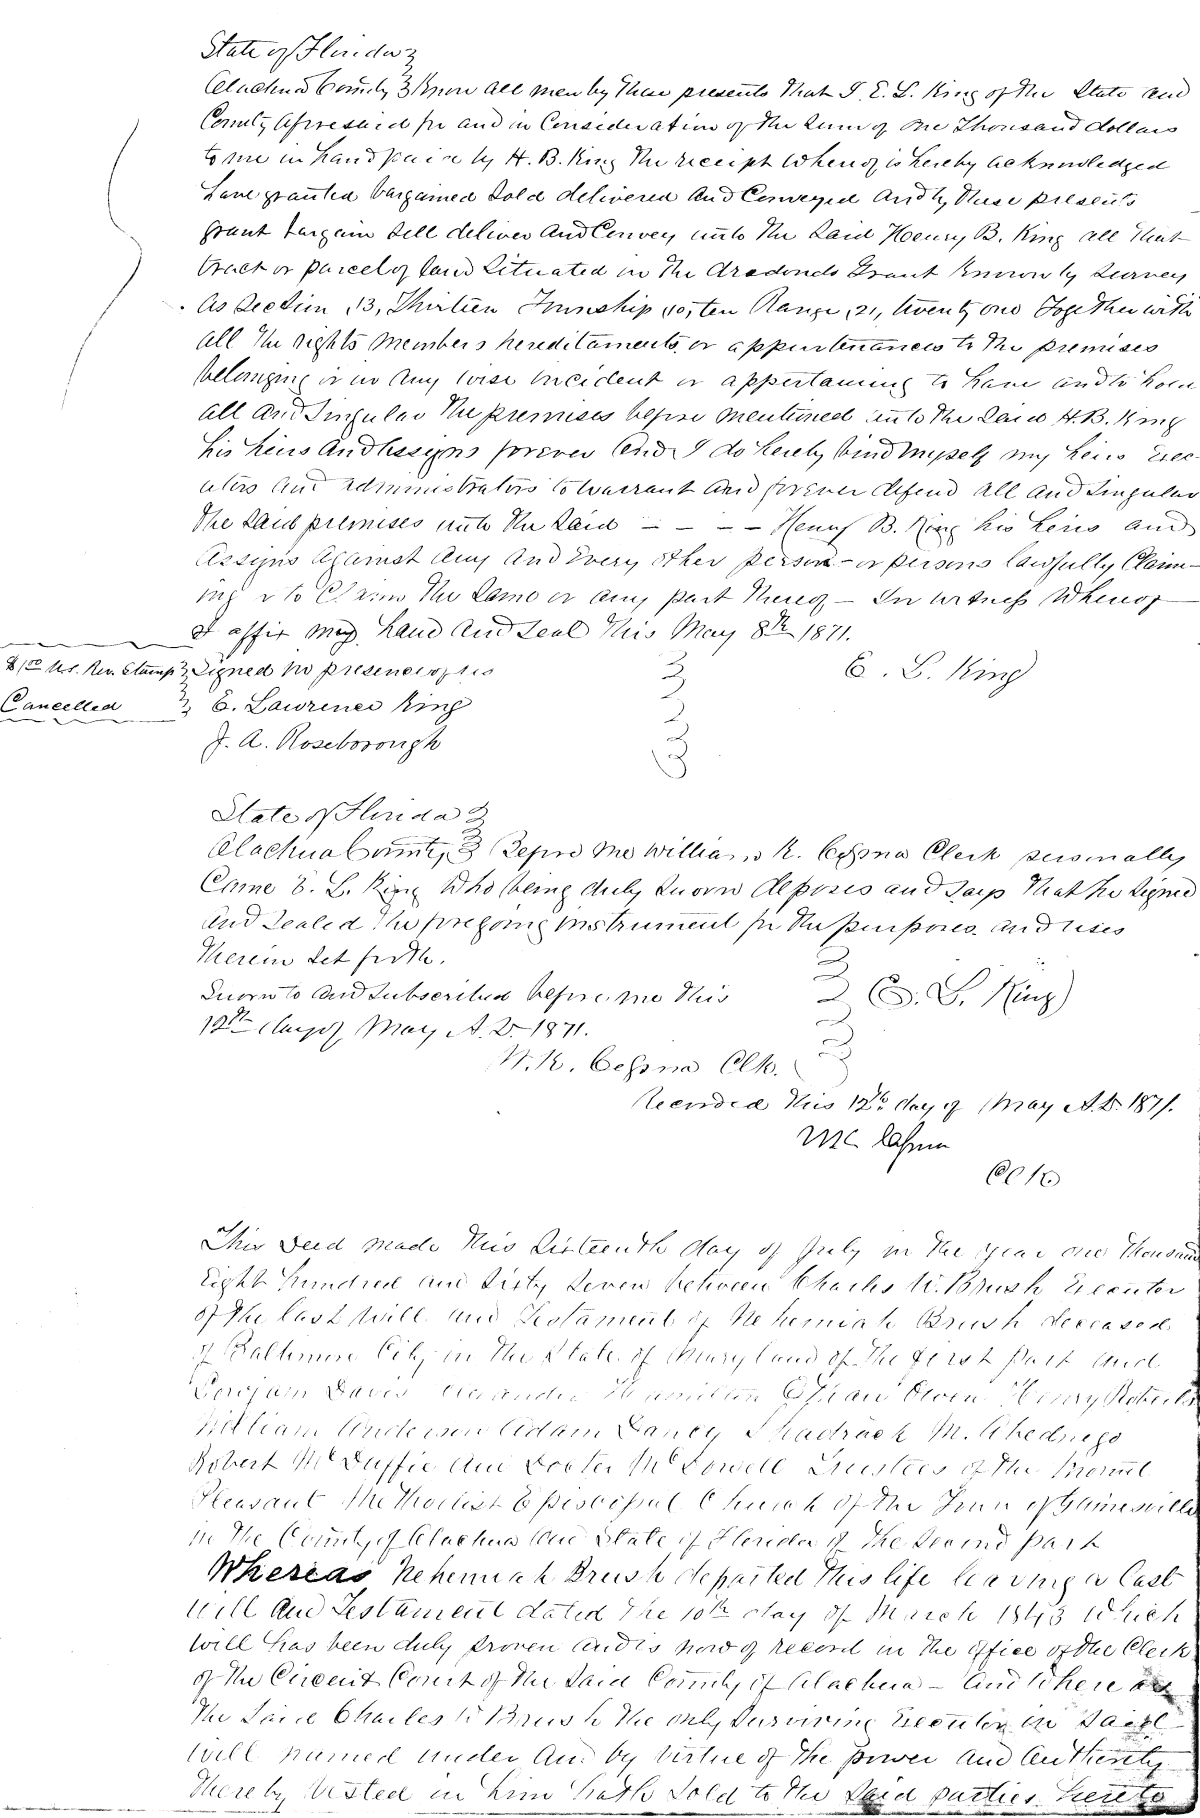 State of Florida
Alachua County Know all men by these presents that I E. L. King of the State and
County aforesaid for and in Consideration of the Sum of one Thousand dollars
to me in hand paid by H. B. King the receipt whereof is hereby acknowledged
have granted bargained sold delivered and Conveyed and by these presents
grant bargain sell deliver and Convey unto the Said Henry B. King all that
tract or parcel of land Situated in the Aredondo Grant Known by Survey
as Section ,13, Thirteen Township ,10, ten Range ,21, twenty one Together with
all the rights members hereditaments or appurtenances to the premises
belonging or in any wise incident or appertaining to have and to hold
all and Singular the premises before mentioned unto the Said H. B. King
his heirs and Assigns forever And I do hereby bind myself my heirs Exec-
utors and administrators to warrant and forever defend all and Singular
the Said premises unto the Said - - - - Henry B. King his heirs and
Assigns against any and Every other person - or persons lawfully Claim-
ing or to Claim the Same or any part thereof - In witness Whereof
I affix my hand and Seal This May 8th 1871.
$1.00 U.S. Rev. Stamp Signed in presence of us E. L. King
Cancelled E. Lawrence King
J. A. Roseborough
State of Florida
Alachua County, Before me William K. Cessna Clerk personally
Came E. L. King Who being duly Sworn deposes and Says that he Signed
and Sealed the foregoing instrument for the purposes and uses
therein Set forth.
Sworn to and Subscribed before me this E. L. King
12th day of May A.D. 1871.
W. K. Cessna Clk.
Recorded this 12th day of May A.D. 1871.
W K Cessna
Clk
This Deed made this Sixteenth day of July in the year one thousand
Eight hundred and Sixty Seven between Charles W. Brush Executor
of the last Will and Testament of Nehemiah Brush deceased
of Baltimore City in the State of Maryland of the first part and
Benjam Davis Alexander Hamilton Owen Henry Roberts
William Anderson Adam Dancy Shadrack M. Abednego
Robert McDuffie and Doctor McDowell Trustees of the Mount
Pleasant Methodist Episcopal Church of the Town of Gainesville
in the County of Alachua and State of Florida of the Second part
Whereas Nehemiah Brush departed this life leaving a Last
Will and Testament dated the 10th day of March 1843 Which
Will has been duly proven and is now of record in the office of the Clerk
of the Circuit Court of the Said County of Alachua - And Whereas
the Said Charles W Brush the only Surviving Executor in Said
Will named under and by virtue of the power and Authority
thereby Vested in him hath Sold to the Said parties hereto